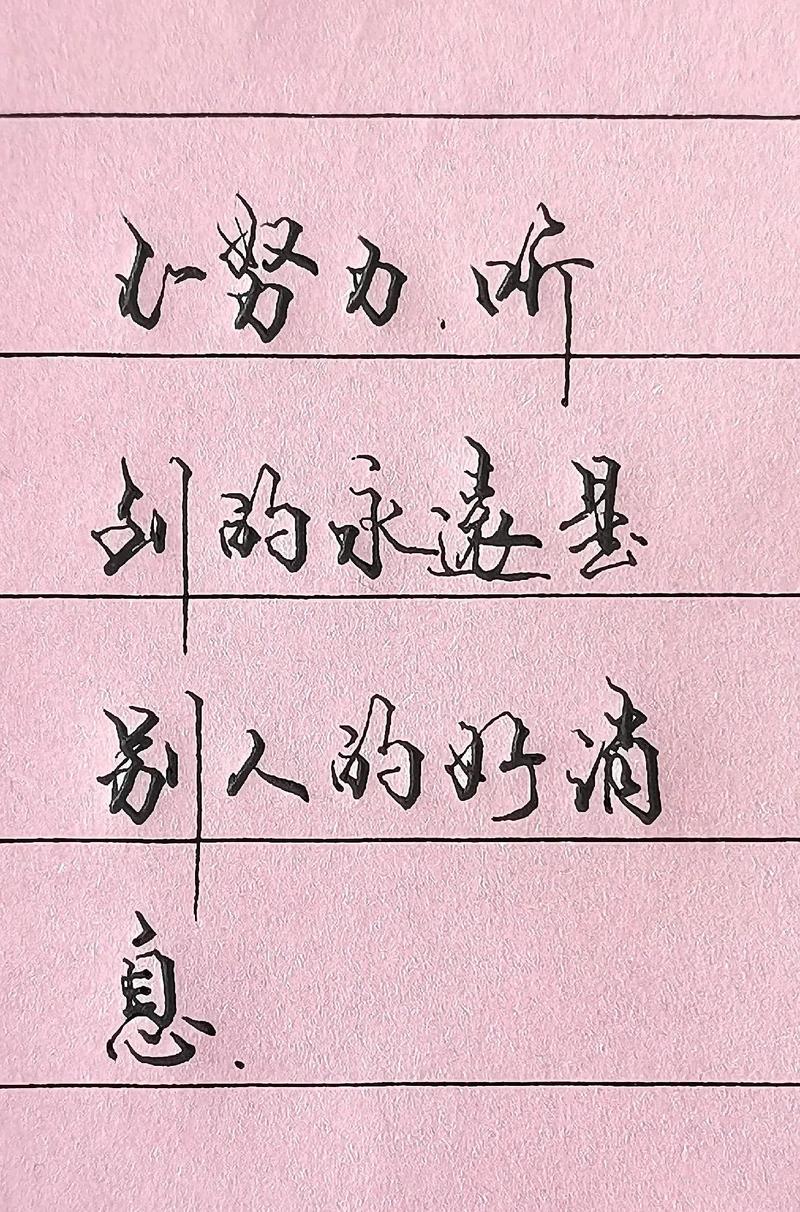 不努力.听
到的永遠是
别人的好消
息.